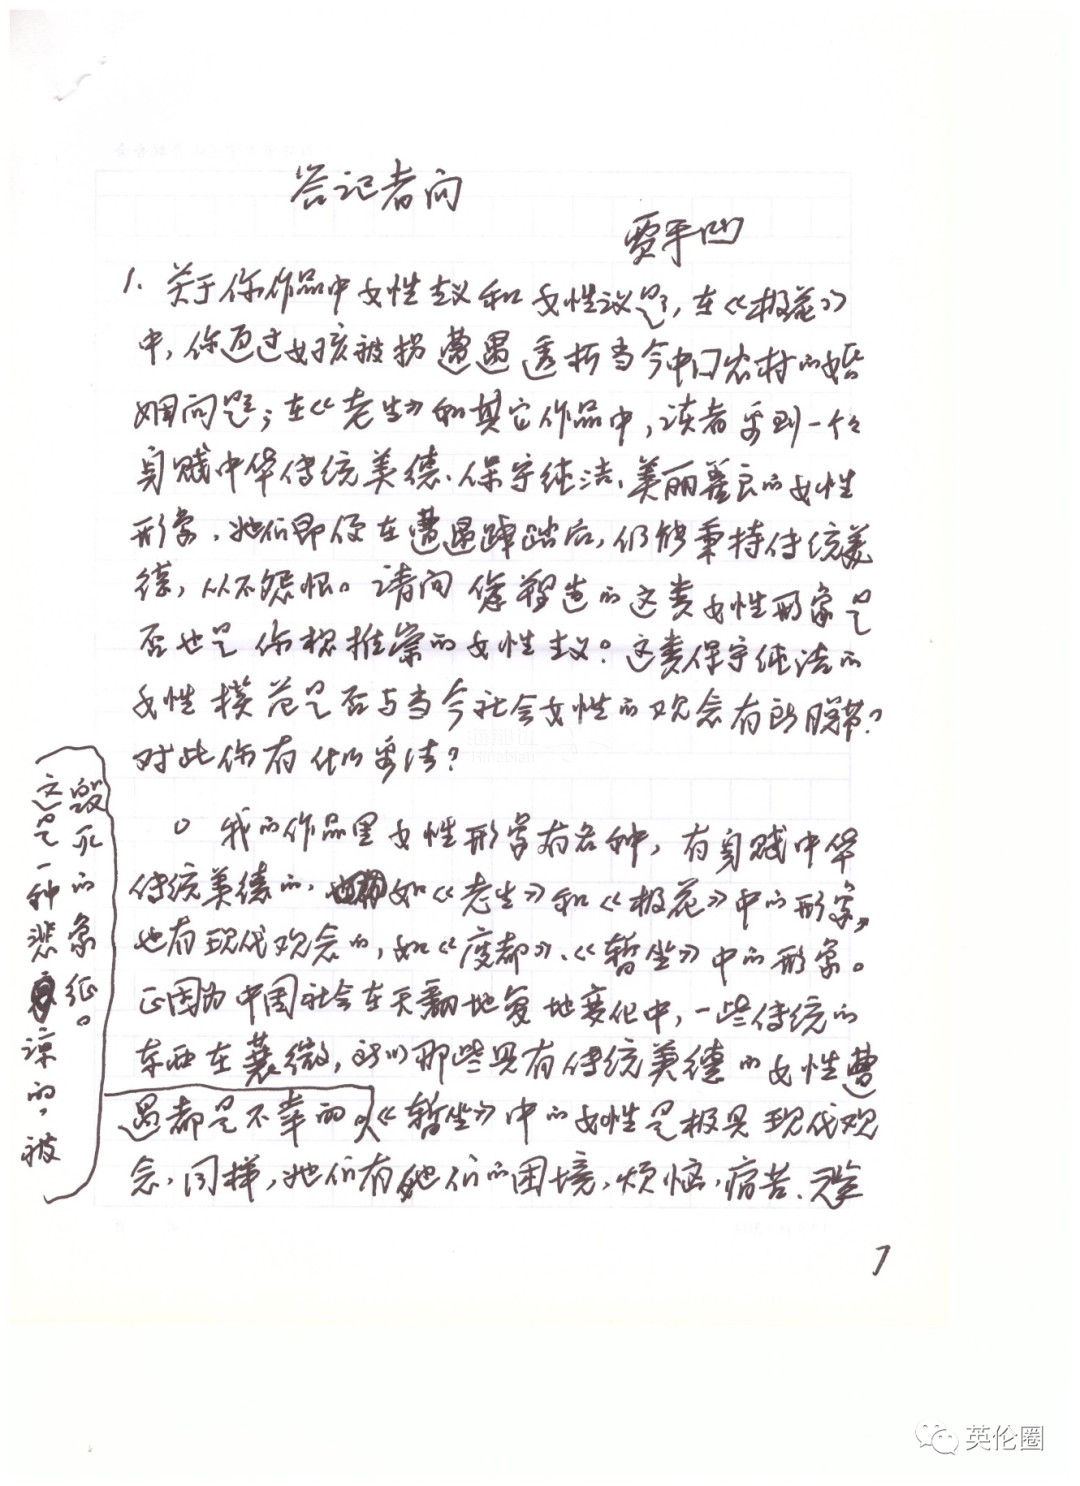 答记者问
贾平凹
1. 关于你作品中女性主义和女性议题，在《极花》
中，你通过女孩被拐遭遇透析当今中国农村的婚
姻问题；在《老生》和其它作品中，读者看到一个个
身赋中华传统美德、保守纯洁、美丽善良的女性
形象，她们即便在遭遇蹂踏后，仍能秉持传统美
德，从不怨恨。请问你塑造的这类女性形象是
否也是你想推崇的女性主义？这类保守纯洁的
女性模范是否与当今社会女性的观念有所脱节？
对此你有什么看法？
○ 我的作品里女性形象有各种，有身赋中华
传统美德的，如《老生》和《极花》中的形象，
也有现代观念的，如《废都》、《暂坐》中的形象。
正因为中国社会在天翻地复地变化中，一些传统的
东西在衰微，所以那些具有传统美德的女性遭
遇都是不幸的，
这是一种悲凉的，被
毁灭的象征。
《暂坐》中的女性是极具现代观
念，同样，她们有她们的困境，烦恼，痛苦、
1
海那边
Hinabian
英伦圈